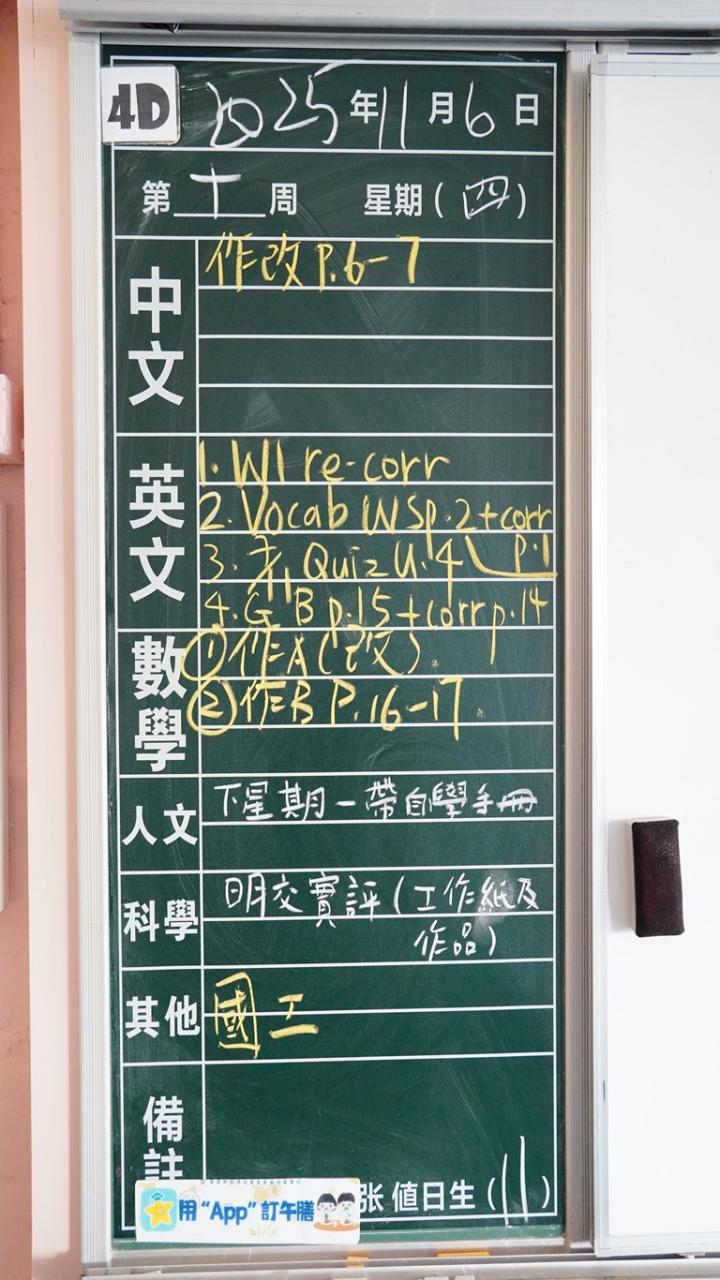 4D
2025年11月6日
第十周 星期(四)
中文
作改 P.6-7
英文
1. W1 re-corr
2. Vocab WS p.2+corr p.1
3. Quiz U.4
4. GB p.15+corr p.14
數學
①作A(改).
②作B P.16-17.
人文
下星期一帶自學手冊
科學
明交實評(工作紙及
作品)
其他
國工
備註
张 值日生(11)
用“App”訂午膳